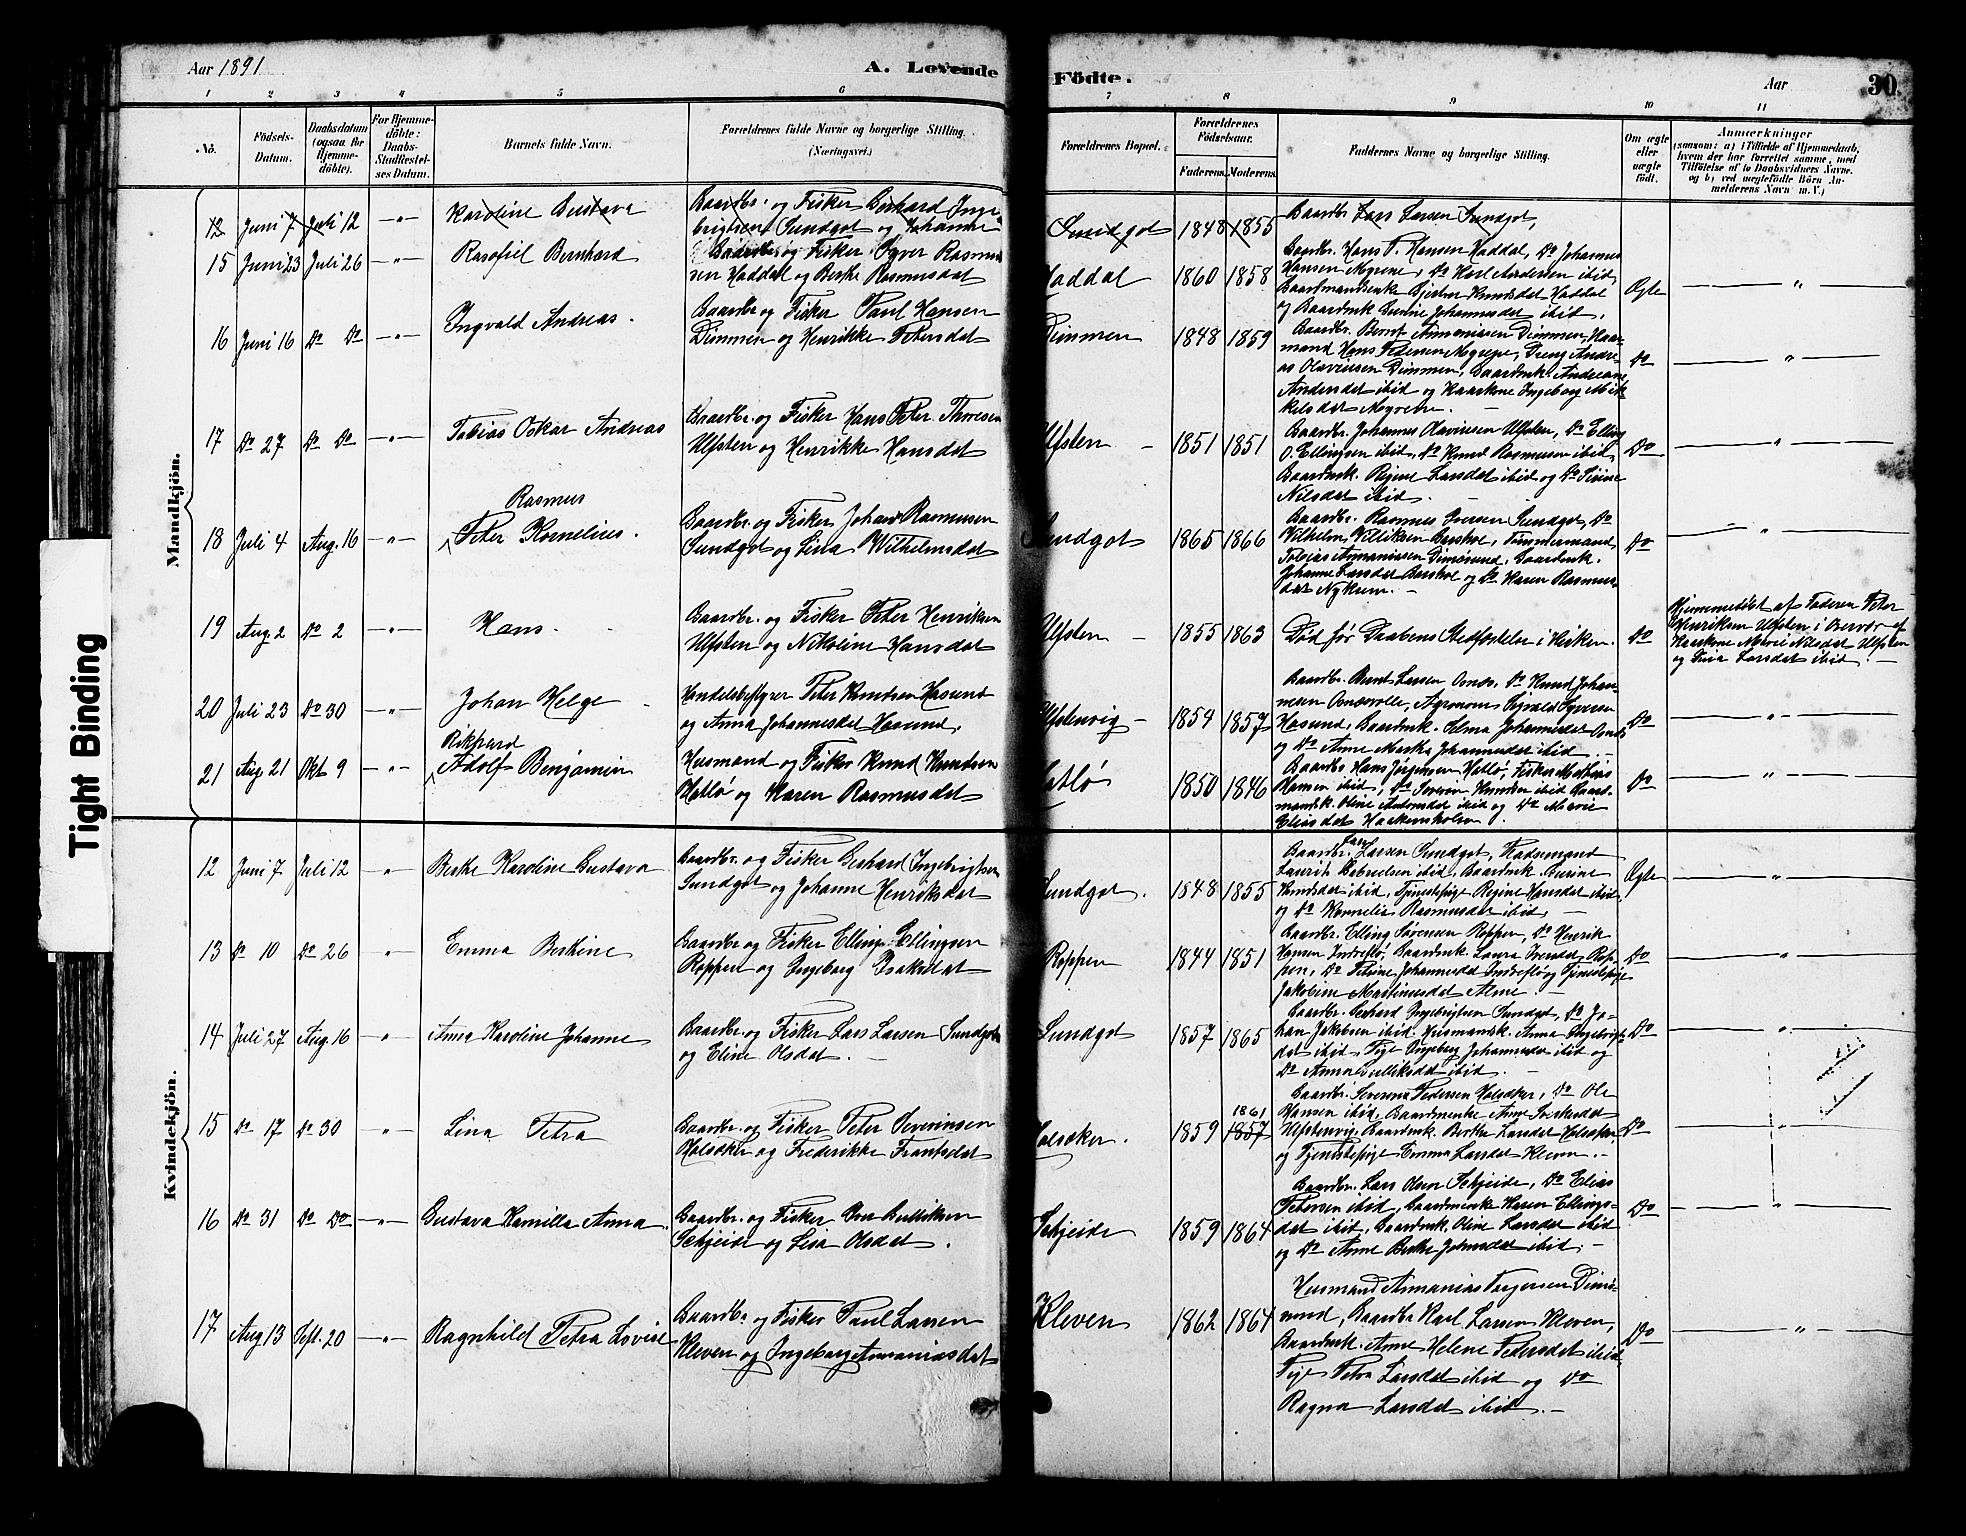 Aar 1891
A. Levende
Födte.
Aar
30
1 2 3 4 5 6 7 8 9 10 11
No.
Födsels-
Datum.
Daabsdatum
(ogsaa for
Hjemme-
döbte).
For Hjemme-
döbte:
Daabs-
Stadfæstel-
ses Datum.
Barnets fulde Navn.
Forældrenes fulde Navne og borgerlige Stilling.
(Næringsvei.)
Forældrenes Bopæl.
Forældrenes
Födselsaar.
Faderens. Moderens.
Faddernes Navne og borgerlige Stilling.
Om ægte
eller
uægte
födt.
Anmærkninger
(saasom: a) i Tilfælde af Hjemmedaab,
hvem der har forrettet samme, med
Tilföielse af to Daabsvidners Navne,
og b) ved uægtefödte Börn An-
melderens Navn m. V.)
Mandkjön.
12 Juni 7 Juli 12 -"- Karoline Gustava
Gaardbr. og Fisker Gerhard Inge-
brigtsen Sundgot og Johanne
Sundgot 1848 1855
Gaardbr. Lars Larsen Sundgot,
15 Juni 23 Juli 26 -"- Rasofiel Bernhard
Gaardbr. og Fisker Ogver Rasmus
sen Haddal og Berthe Rasmusdat
Haddal 1860 1858
Gaardbr. Hans P. Hansen Haddal, Do Johannes
Hansen Myrene, Do Karl Andersen ibid,
Gaardmandsenke Gjertine Knudsdat Haddal
og Gaardmk. Gurine Johannesdat ibid.
Ægte
16 Juni 16 Do Do -"- Ingvald Andreas.
Gaardbr. og Fisker Paul Hansen
Dimmen og Henrikke Petersdat
Dimmen 1848 1859
Gaardbr. Bernt Annaniassen Dimmen, Kaar-
mand Hans Petersen Myrene, Dreng Andre-
as Olavesen Dimmen, Gaardmk. Andreane
Andersdat ibid og Kaarkone Ingeborg Mik-
kelsdat Myrene.
Do
17 Do 27 Do Do -"- Tobias Oskar Andreas
Gaardbr. og Fisker Hans Peter Thoresen
Ulfsten og Henrikke Hansdat
Ulfsten 1851 1851
Gaardbr. Johannes Olavesen Ulfsten, Do Elling
O. Ellingsen ibid, Do Knud Rasmusen ibid,
Gaardmk. Regine Larsdat ibid og Do Sirine
Nilsdat ibid.
Do
Rasmus
18 Juli 4 Aug. 16 -"- Peter Kornelius.
Gaardbr. og Fisker Johan Rasmusen
Sundgot og Lina Wilhelmsdat
Sundgot 1865 1866
Gaardbr. Rasmus Iversen Sundgot, Do
Wilhelm Villiksen Garshol, Tømmermand
Tobias Annaniassen Dimsund, Gaardmk.
Johanne Larsdat Garshol og Do Karen Rasmus-
dat Nykrem.
Do
19 Aug. 2 Do 2 -"- Hans.
Gaardbr. og Fisker Peter Henriksen
Ulfsten og Nikoline Hansdat
Ulfsten 1855 1863
Død før Daabens Stadfæstelse i Kirken.
Do
Hjemmedøbt af Faderen Peter
Henriksen Ulfsten i Overvær af
Kaarkone Marie Nilsdat Ulfsten
og Lina Larsdat ibid.
20 Juli 23 Do 30 -"- Johan Helge
Handelsbestyrer Peter Knudsen Hasund
og Anna Johannesdat Hasund.
Ulfstenvig 1854 1857
Gaardbr. Bernt Larsen Osnes, Do Knud Johan-
nesen Osnesvolle, Agronom Sigvald Syversen
Hasund, Gaardmk. Selma Johannesdat Osnes
og Do Anne Martha Johannesdat ibid.
Do
Rikhard
21 Aug. 21 Okt 9 -"- Adolf Benjamin
Husmand og Fisker Knud Knudsen
Hatlø og Karen Rasmusdat
Hatlø 1850 1846
Gaardbr. Hans Jørgensen Hatlø, Fisker Mathias
Hansen ibid, Do Severin Knudsen ibid, Gaard-
mandsk. Oline Antonsdat ibid og Do Marie
Eliasdat Haakonsholm.
Do
Kvindekjön.
12 Juni 7 Juli 12 " Berthe Karoline Gustava
Gaardbr. og Fisker Gerhard Ingebrigtsen
Sundgot og Johanne Henriksdat
Sundgot. 1848 1855
Gaardbr. Lars Larsen Sundgot, Kaarmand
Laurits Gabrielsen ibid, Gaardmk. Gurine
Knudsdat ibid, Tjenestepige Regine Hansdat ibid,
og Do Kornelia Rasmusdat ibid.
Ægte
13 Do 10 Do 26 " Emma Berthine
Gaardbr. og Fisker Elling Ellingsen
Roppen og Ingeborg Isaksdat
Roppen 1844 1851
Gaardbr. Elling Sørensen Roppen, Do Henrik
Hansen Indreflø, Gaardmk. Laura Iversdat Rop-
pen, Do Petrine Johannesdat Indreflø og Tjenestepige
Jakobine Martinusdat Alme.
Do
14 Juli 27 Aug. 16 " Anna Karoline Johanne
Gaardbr. og Fisker Lars Larsen Sundgot
og Eline Olsdat.
Sundgot 1857 1865
Gaardbr. Gerhard Ingebrigtsen Sundgot, Do Jo-
han Jakobsen ibid, Husmandsk. Anna Ingebrigts-
dat ibid, Pige Ingeborg Johannesdat ibid og
Do Anna Gullicksdat ibid.
Do
15 Do 17 Do 30 " Lina Petra
Gaardbr. og Fisker Peter Severinsen
Holsæker og Frederikke Frantsdat
Holsæker. 1859 1861 1857
Gaardbr. Severinus Pedersen Holsæker, Do Ole
Hansen ibid, Gaardmenke Anne Sverkesdat
Ulfstenvig, Gaardmk. Berthe Larsdat Holsæker
og Tjenestepige Emma Larsdat Kleven.
Do
16 Do 31 Do Do -"- Gustava Kamilla Anna
Gaardbr. og Fisker Ole Gulliksen
Schjeide og Lisa Olsdat.
Schjeide 1859 1864
Gaardbr. Lars Olsen Schjeide, Do Elias
Petersen ibid, Gaardmenke Karen Ellings-
dat ibid, Gaardmk. Oline Larsdat ibid
og Do Anne Berthe Johnsdat ibid.
Do
17 Aug. 13 Sept. 20 -"- Ragnhild Petra Lovise
Gaardbr. og Fisker Paul Larsen
Kleven og Ingeborg Annaniasdat
Kleven 1862 1864
Husmand Annanias Torgersen Dim-
sund, Gaardbr. Karl Larsen Kleven,
Gaardmk. Anne Helene Pedersdat ibid,
Pige Petra Larsdat ibid og Do
Ragna Larsdat ibid.
Do
Tight Binding